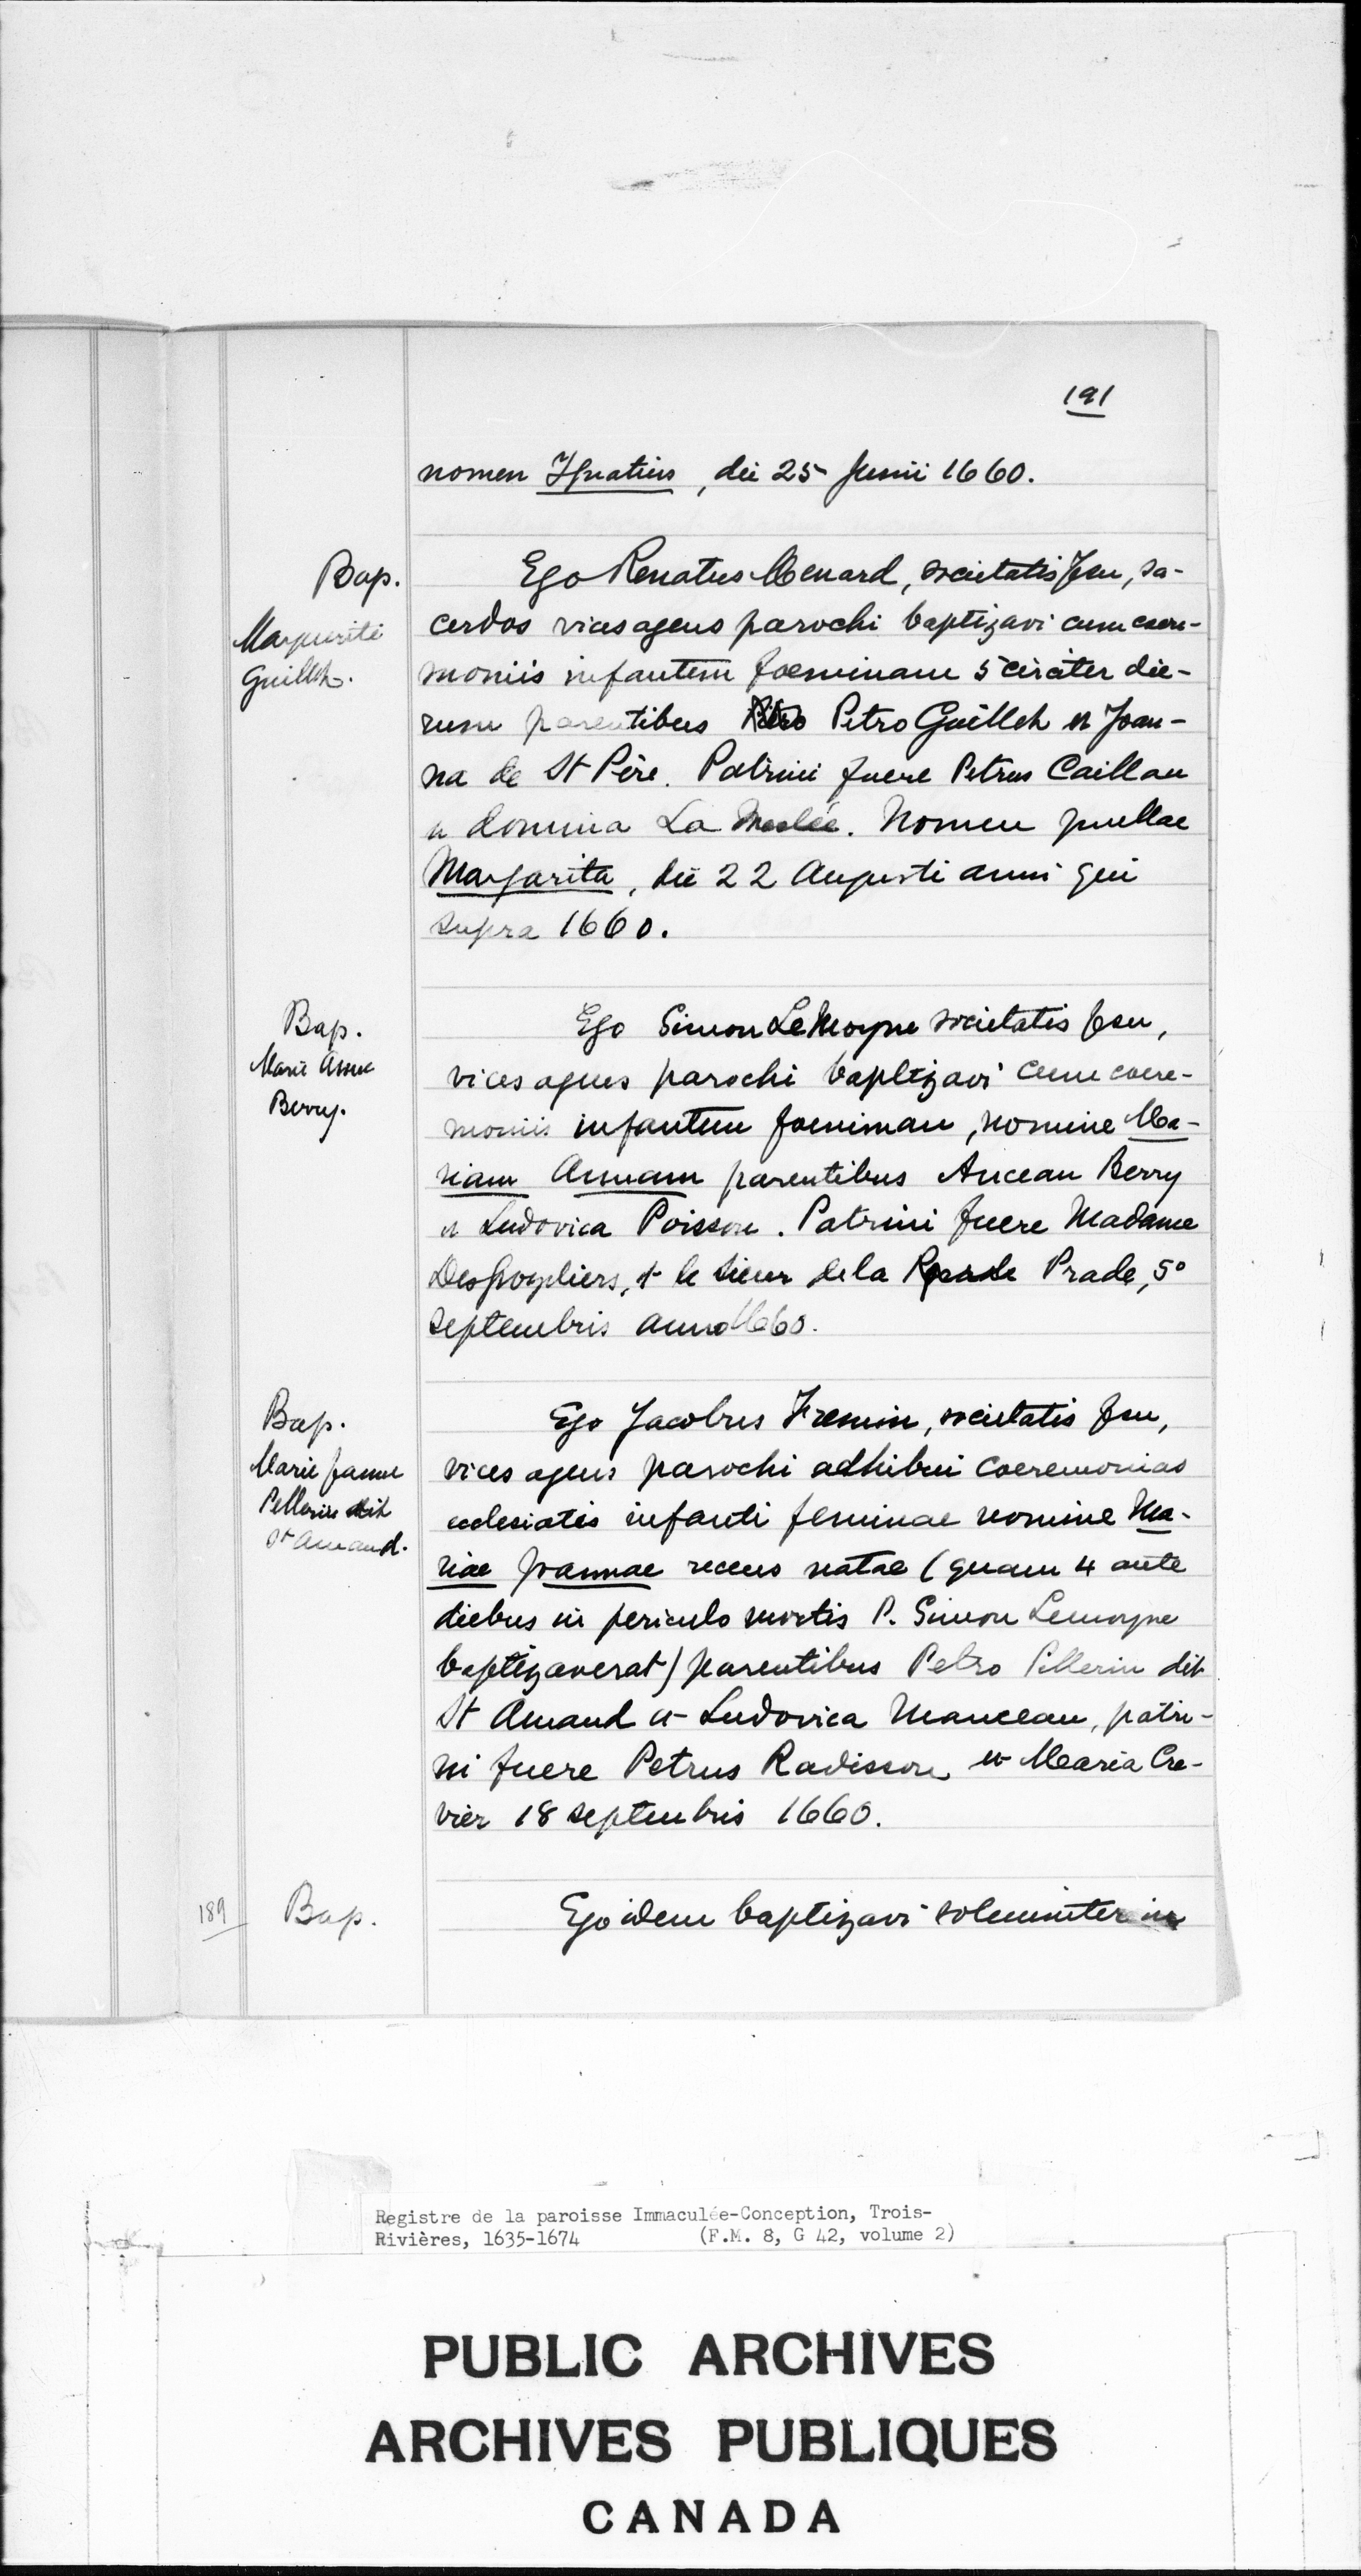 191
nomen Ignatius, die 25 Junii 1660.
Bap.
Marguerite
Guillet.
Ego Renatus Menard, societatis Jesu, sa-
cerdos vices agens parochi baptizavi cum caere-
moniis infantem foeminam 5 circiter die-
rum parentibus Petro Guillet et Joan-
na de St Père. Patrini fuere Petrus Caillau
et domina La Meslée. Nomen puellae
Margarita, die 22 Augusti anni qui
supra 1660.
Bap.
Marie Anne
Berry.
Ego Simon LeMoyne societatis Jesu,
vices agens parochi baptizavi cum caere-
moniis infantem foeminam, nomine Ma-
riam Annam parentibus Anceau Berry
et Ludovica Poisson. Patrini fuere Madame
Desgroyliers, et le sieur de la Prade, 5°
septembris anno 1660.
Bap.
Marie Jeanne
Pellerin dit
St Amand.
Ego Jacobus Fremin, societatis Jesu,
vices agens parochi adhibui caeremonias
ecclesiatis infanti feminae nomine Ma-
riae Joannae recens natae (quam 4 ante
diebus in periculo mortis P. Simon Lemoyne
baptizaverat) parentibus Petro Pillerin dit
St Amand et Ludovica Manceau, patri-
ni fuere Petrus Radisson et Maria Cre-
vier 18 septembris 1660.
189
Bap.
Ego idem baptizavi solemniter in
Registre de la paroisse Immaculée-Conception, Trois-
Rivières, 1635-1674 (F.M. 8, G 42, volume 2)
PUBLIC ARCHIVES
ARCHIVES PUBLIQUES
CANADA